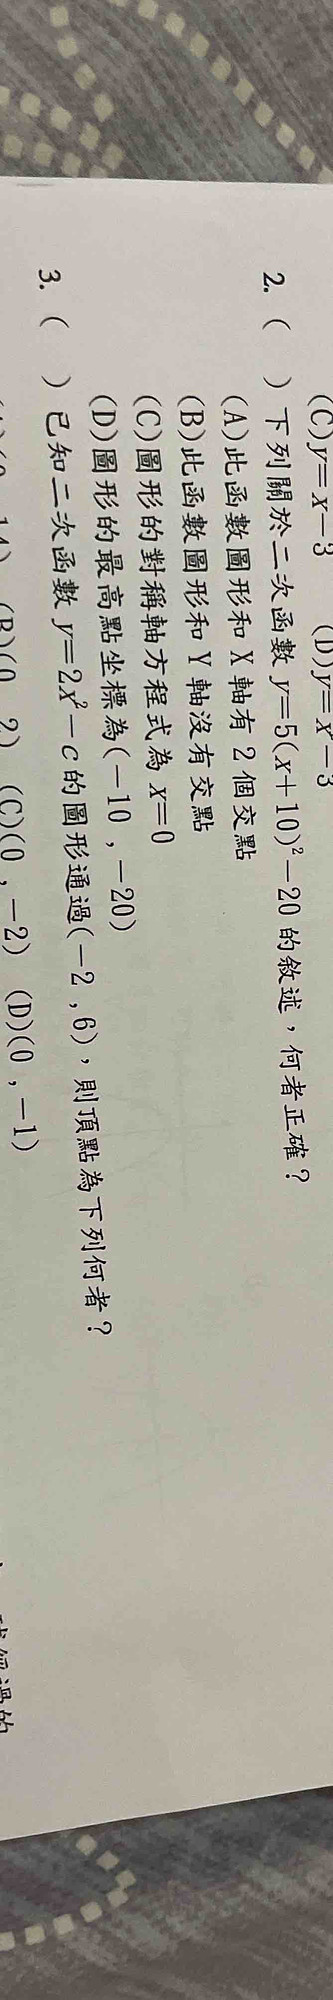 (C) y=x-3 (D) y=x-3
2. ( ) 下列關於二次函數 y=5(x+10)²-20 的敘述，何者正確？
(A) 此函數圖形和 X 軸有 2 個交點
(B) 此函數圖形和 Y 軸沒有交點
(C) 圖形的對稱軸方程式為 x=0
(D) 圖形的最高點坐標為(-10 , -20)
3. ( ) 已知二次函數 y=2x²-c 的圖形通過(-2 , 6)，則頂點為下列何者？
(B)(0 , 2) (C)(0 , -2) (D)(0 , -1)